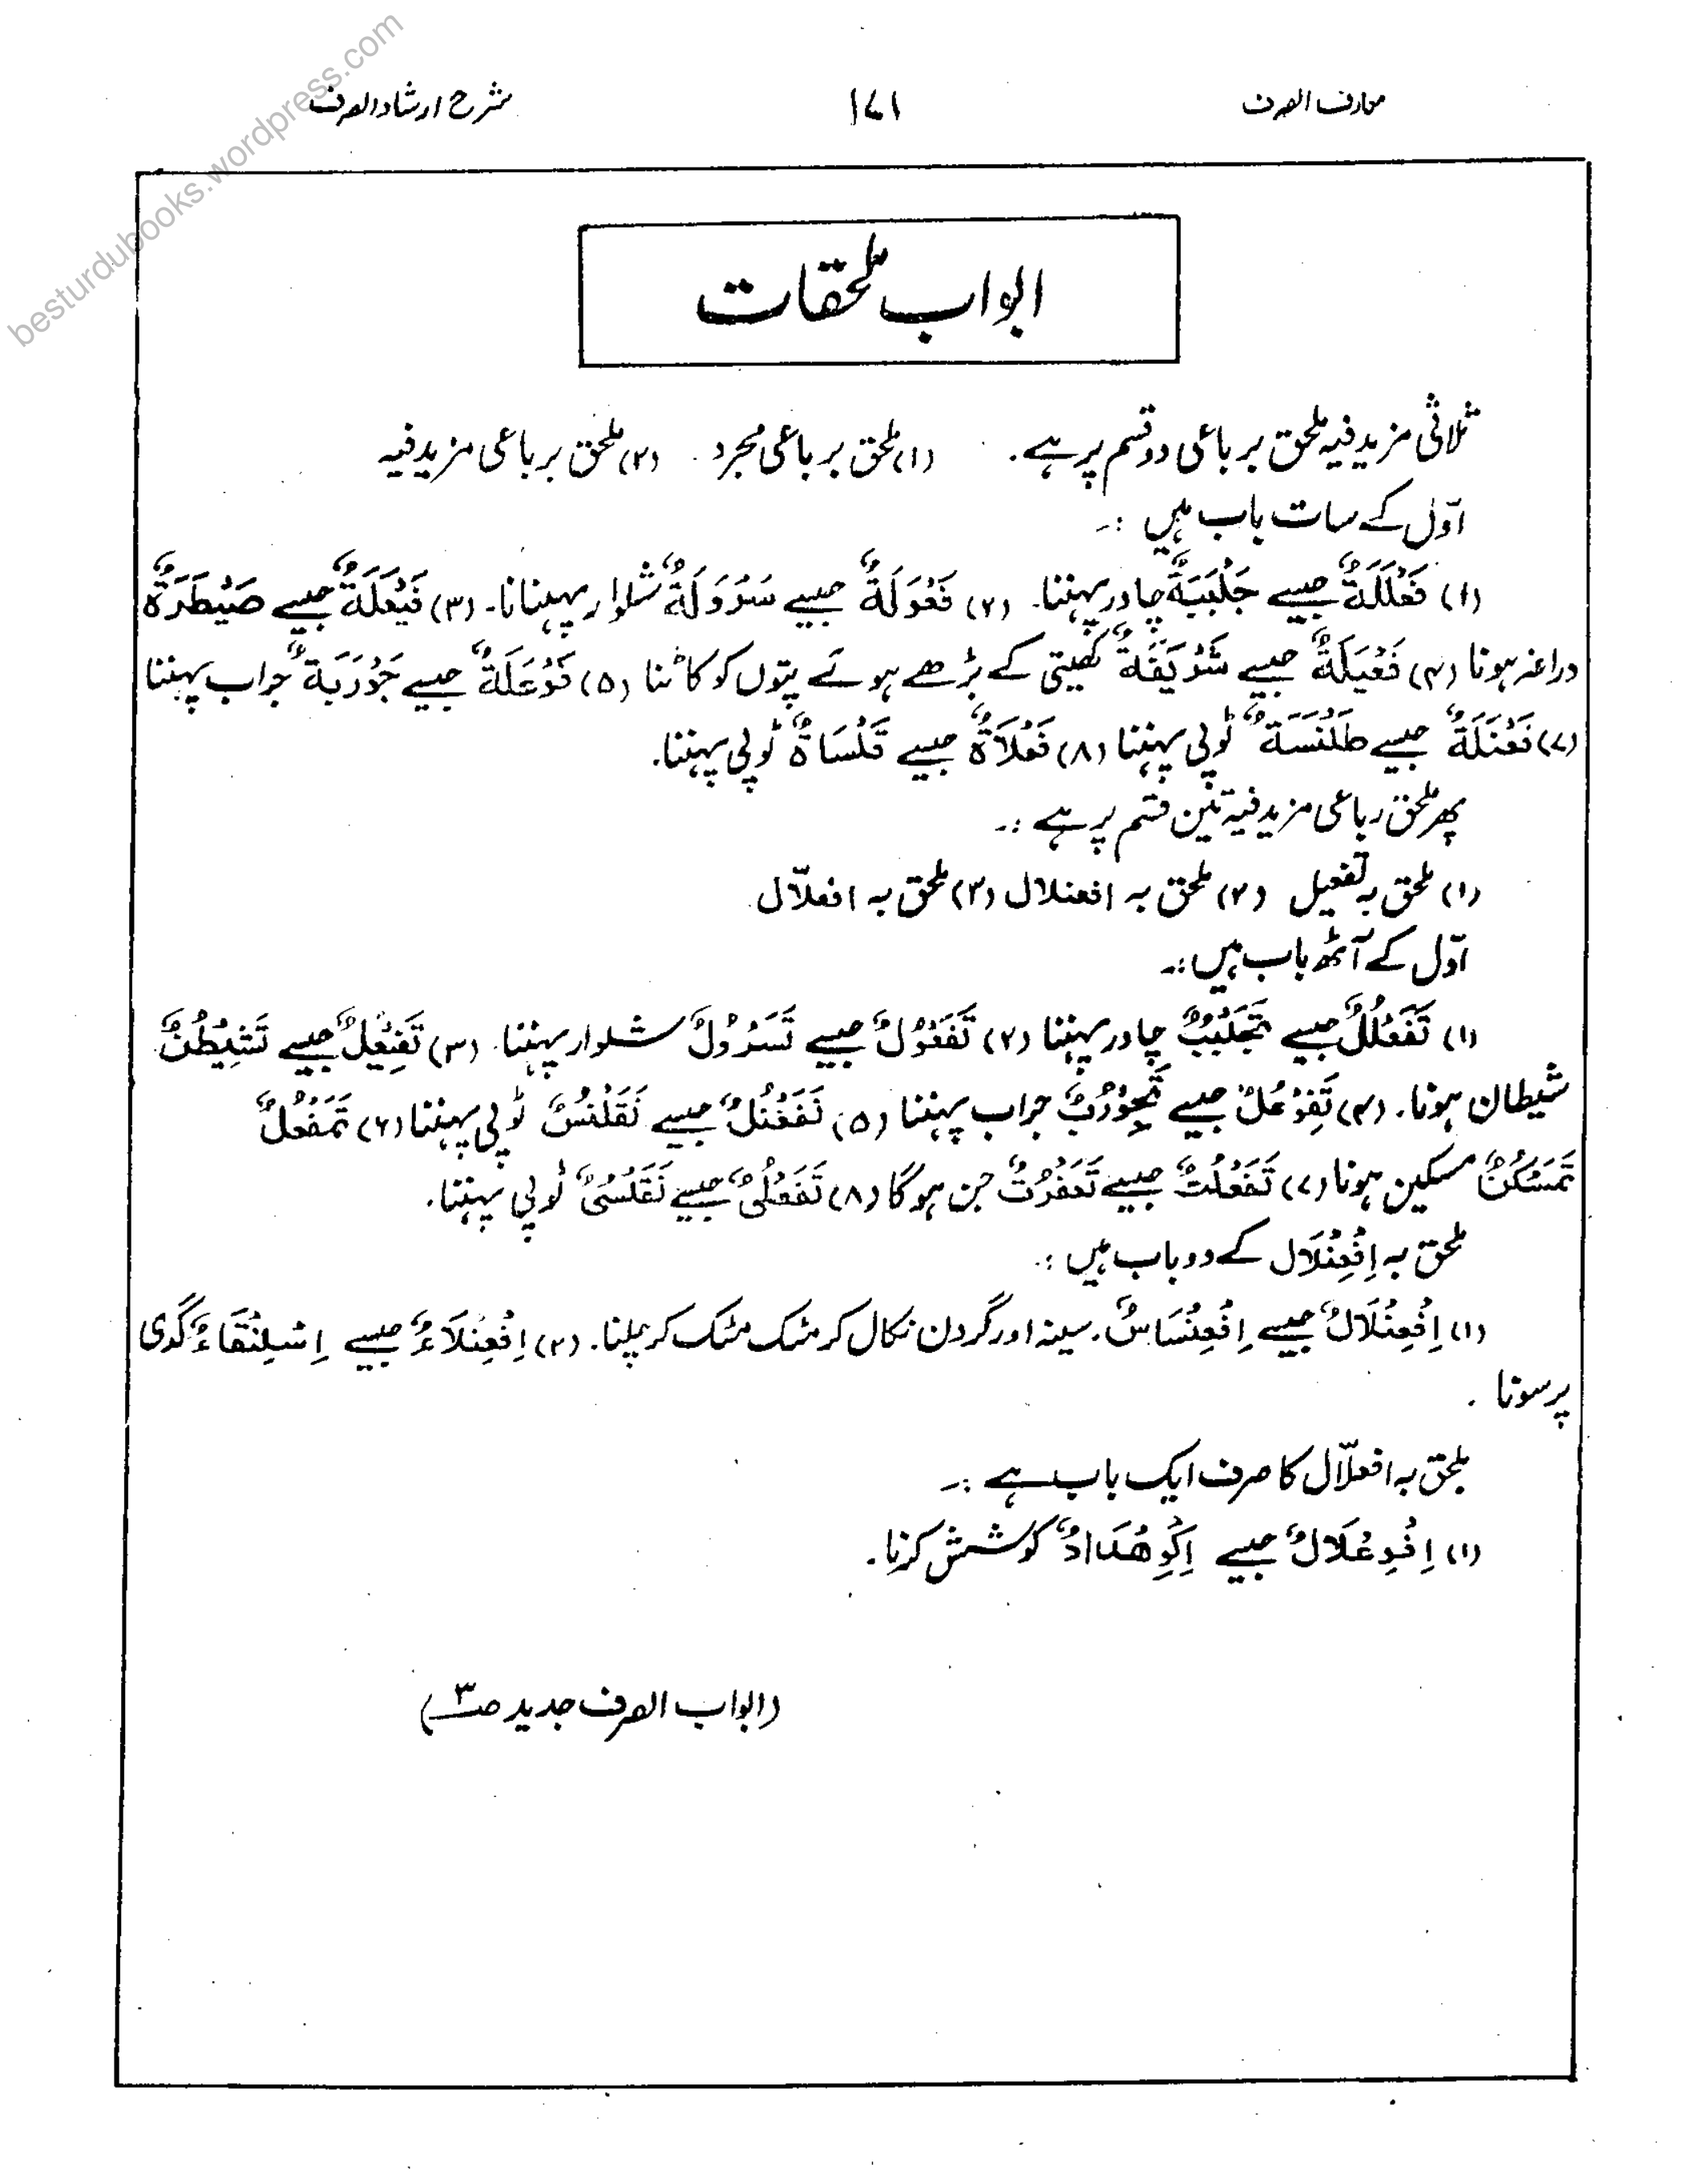 معارف الصرف ۱۷۱ شرح ارشاد الصرف
besturdubooks.wordpress.com
ابواب ملحقات
ثلاثی مزید فیہ ملحق بر باعی دو قسم پر ہے۔ (۱) ملحق بر باعی مجرد (۲) ملحق بر باعی مزید فیہ
اوّل کے سات باب ہیں :۔
(۱) فَعْلَلَةٌ جیسے جَلْبَبَةٌ چادر پہننا۔ (۲) فَعْوَلَةٌ جیسے سَرْوَلَةٌ شلوار پہنانا۔ (۳) فَیْعَلَةٌ جیسے صَیْطَرَةٌ
دراغہ ہونا (۴) فَعْیَلَةٌ جیسے شَرْیَفَةٌ کھیتی کے بڑھے ہوئے پتوں کو کاٹنا (۵) فَوْعَلَةٌ جیسے جَوْرَبَةٌ جراب پہننا
(۷) فَعْنَلَةٌ جیسے طَلْنَسَةٌ ٹوپی پہننا (۸) فَعْلَاةٌ جیسے قَلْسَاةٌ ٹوپی پہننا۔
پھر ملحق رباعی مزید فیہ تین قسم پر ہے :۔
(۱) ملحق بہ تفعیل (۲) ملحق بہ افعنلال (۳) ملحق بہ افعلّال
اوّل کے آٹھ باب ہیں :۔
(۱) تَفَعْلُلٌ جیسے تَجَلْبُبٌ چادر پہننا (۲) تَفَعْوُلٌ جیسے تَسَرْوُلٌ شلوار پہننا۔ (۳) تَفَیْعُلٌ جیسے تَشَیْطُنٌ
شیطان ہونا۔ (۴) تَفَوْعُلٌ جیسے تَجَوْرُبٌ جراب پہننا (۵) تَفَعْنُلٌ جیسے تَقَلْنُسٌ ٹوپی پہننا (۶) تَمَفْعُلٌ
تَمَسْکُنٌ مسکین ہونا (۷) تَفَعْلُتٌ جیسے تَعَفْرُتٌ جن ہوگا (۸) تَفَعْلُیٌ جیسے تَقَلْسُیٌ ٹوپی پہننا۔
ملحق بہ اِفْعِنْلَال کے دو باب ہیں :۔
(۱) اِفْعِنْلَالٌ جیسے اِفْعِنْسَاسٌ۔ سینہ اور گردن نکال کر مٹک مٹک کر چلنا۔ (۲) اِفْعِنْلَاءٌ جیسے اِسْلِنْقَاءٌ گدی
پر سونا ۔
ملحق بہ افعلّال کا صرف ایک باب ہے :۔
(۱) اِفْوِعْلَالٌ جیسے اِکْوِهْدَادٌ کوشش کرنا۔
(ابواب الصرف جدید صـ۳)